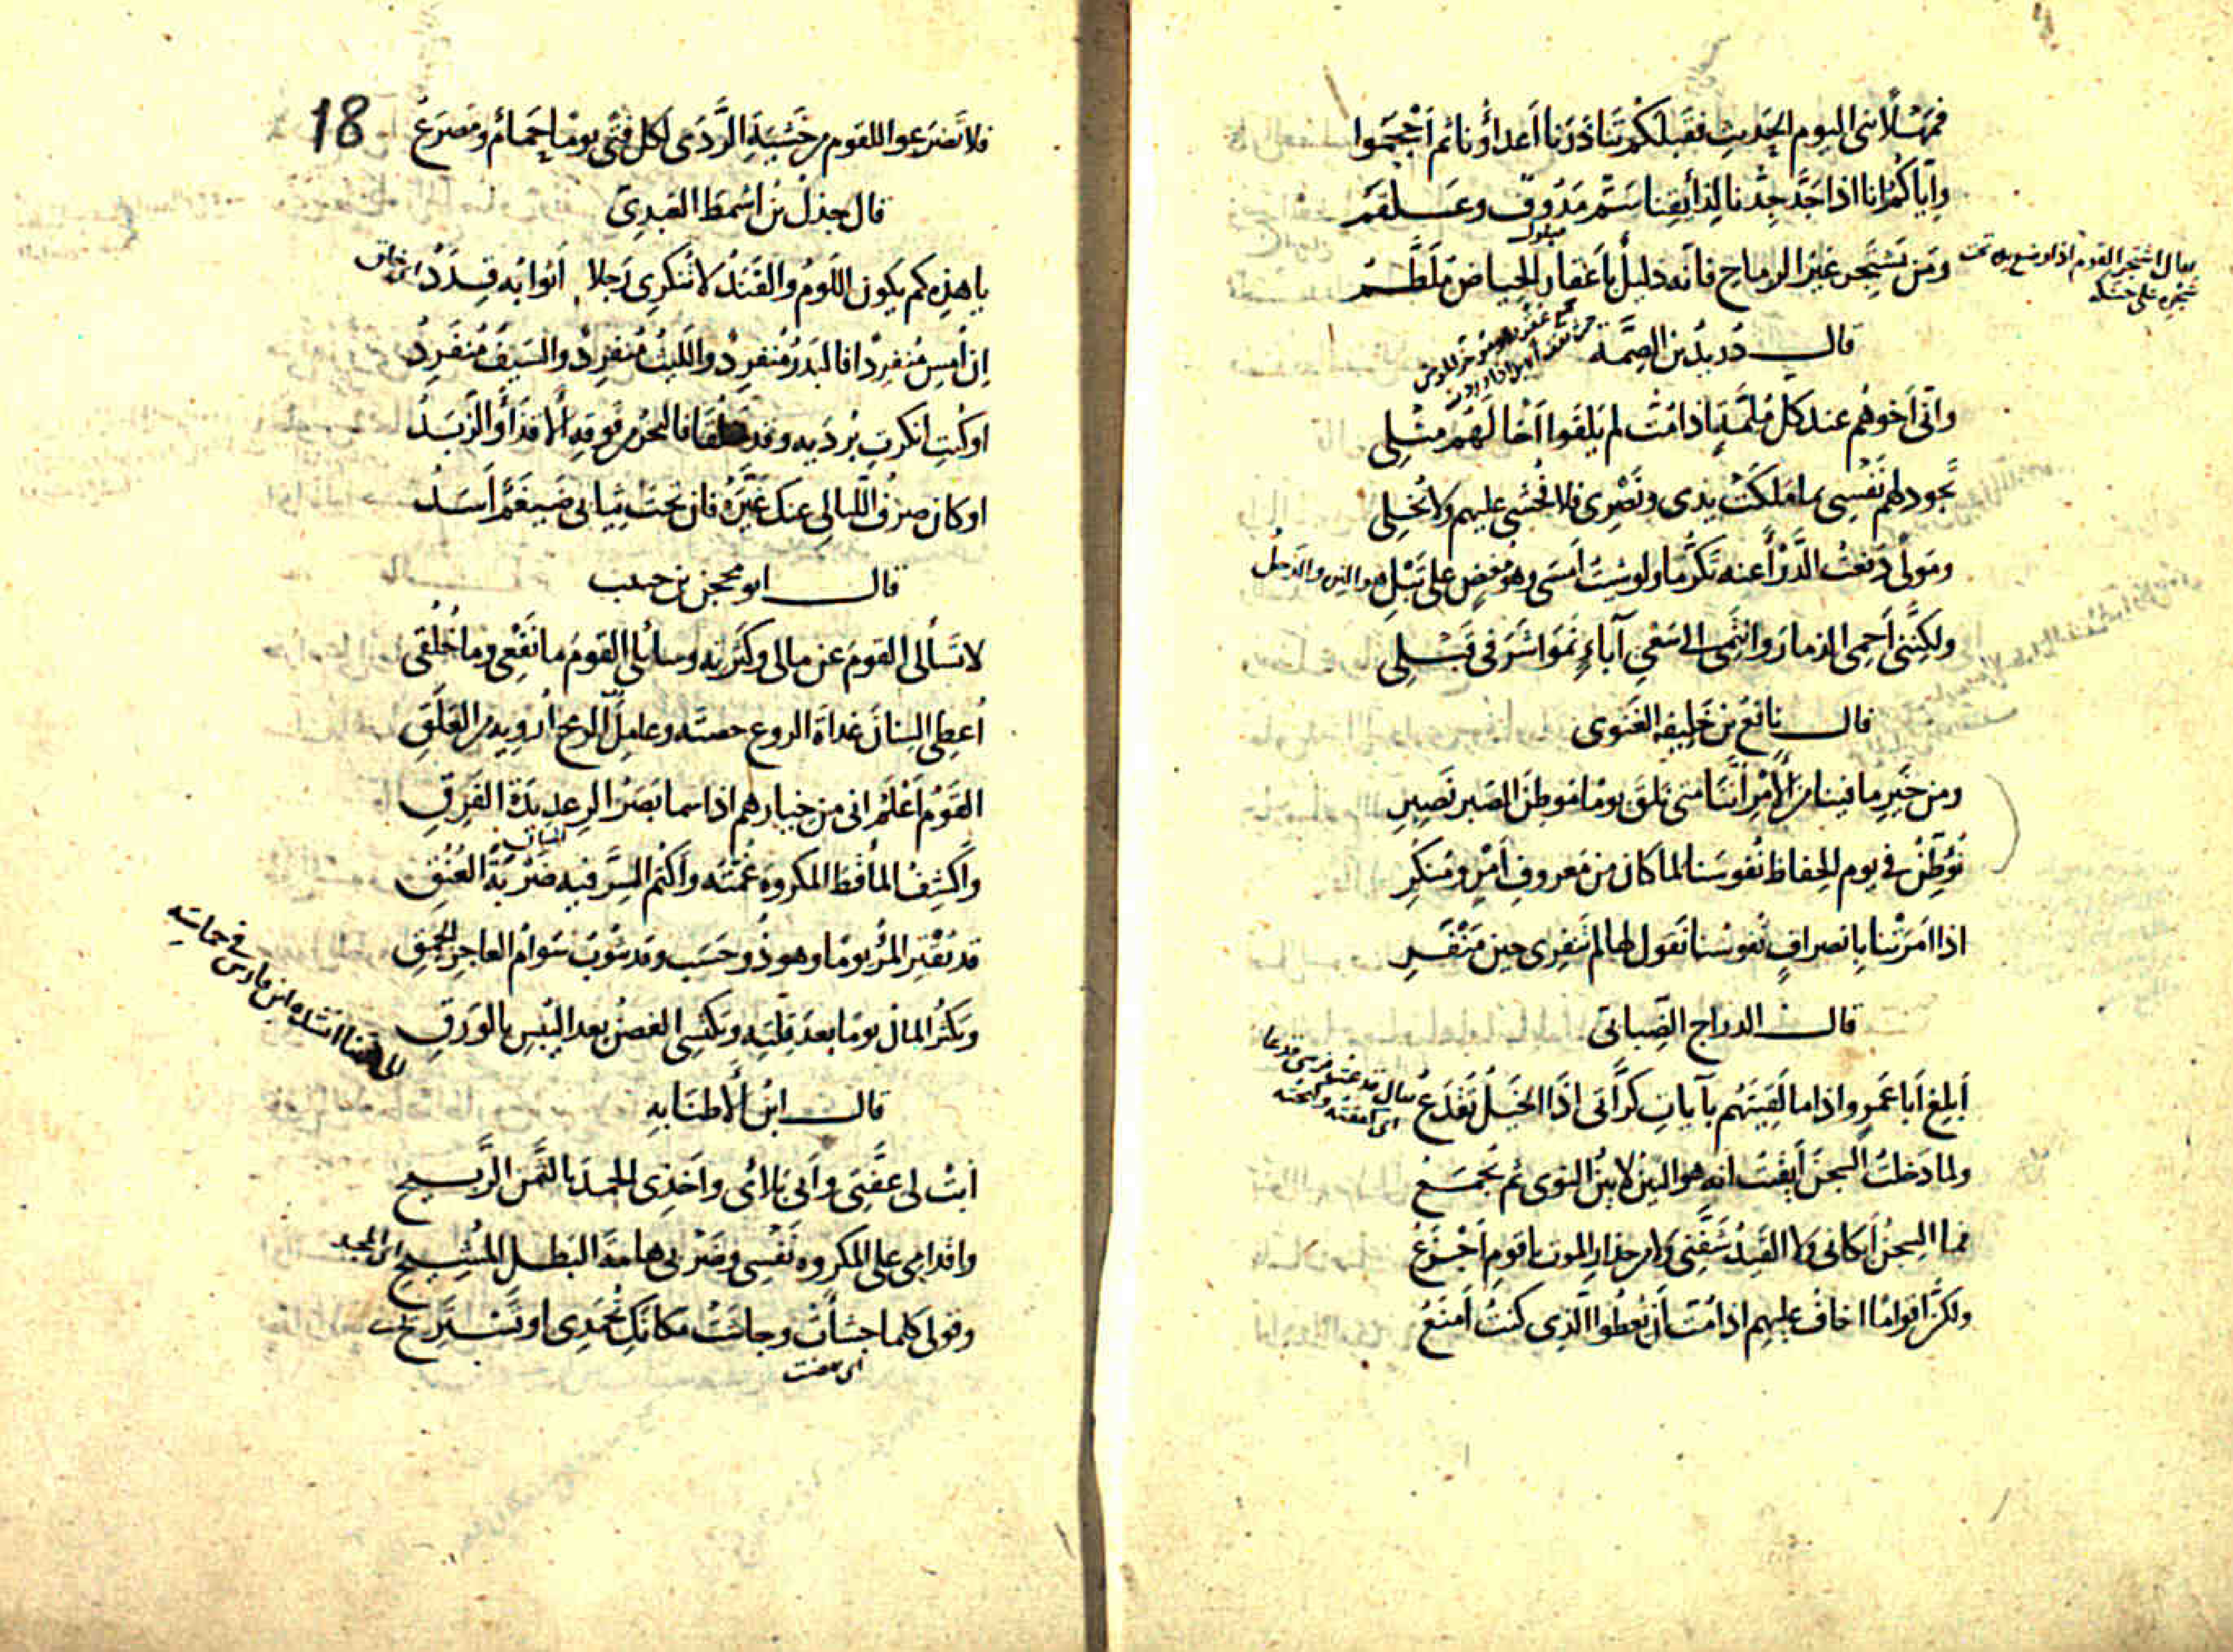 فمَهْلًا بني اليوم الحَدِيثِ فقَبلَكُمْ تَناذَرَنا أعداؤنا ثم أحْجَموا
وايّاكُمُ انا اذا جَدَّ جِدُّنا لِذائِقِنا سَمٌّ مَدُوفٌ وعَلقَم
ومَن يَشتَجِر غيرَ الرماحِ فانه ذليلٌ بأعقارِ الحِياضِ مُلَطَّمُ
يقال اشتجر القوم اذا وضع يده تحت
شجره على حنكه
قال دُريدُ بن الصِمَّه
وانّى أخوهُم عند كل مُلِمَّةٍ اذا مُتُّ لم يَلقَوا أخًا لهُم مثلى
تَجود لهم نَفْسِى بما ملكَتْ يدى ونَصْرِى فلا فُحْشى عليهم ولا بُخلِى
ومَولًى دَفعتُ الدَّرْأَ عنه تكَرُّما ولو شِئتُ أمسَى وهو مُغضٍ على تَبْلِ هو الذحل
ولكِنَّنى أحمِى الذمارَ وانتَمى الى سَعْىِ آباءٍ نَمَوا شَرَفى قَبلِى
قال نافع بن خَليفه الغَنَوى
ومِن خَيرِ ما فينا من الأمْرِ أنَّنا متى نلقَ يومًا مَوطِنَ الصَبرِ نَصبِرِ
نُوَطِّنُ في يوم الحِفاظ نُفوسَنا لما كان من مَعروفِ أمْرٍ ومُنكَرِ
اذا امَرَتْنا بانصرافٍ نُفوسُنا نَقول لها لم تَفِرى حين مَنْفَرِ
قال الدراج الضِبابى
أبلغ أبا عَمرو اذا ما لَقِيتَهُم بآياتِ كَرَّاتى اذا الخَيلُ تُقدَعُ
ولما دَخلتُ السجنَ أيقنتُ انه هو البَينُ لا بَينُ النوى ثم تُجمَعُ
فما السِجنُ أبكانى ولا القَيدُ شَفَّنى ولا من حِذارِ الموت يا قومِ أجْزَعُ
ولكنَّ اقوامًا اخافُ عليهم اذا مُتُّ أن يُعطُوا الَّذِى كنتُ أمنَعُ
18
فلا تَضرعوا للقوم من خَشيَةِ الرَّدَى لكل فتى يومًا حِمامٌ ومَصرَعُ
قال جِذل بن اشمط العَبدِىّ
يا هذِه كم يكون اللَومُ والفَنَدُ لا تُنكِرِى رَجلا أثوابُه قِدَدُ اى خلق
إن أُمسِ مُنفردًا فالبَدرُ مُنفرِدٌ والليثُ مُنفرِدٌ والسَيفُ مُنفرِدُ
او كُنتِ انكرتِ بُردَيه وقد خلقَا فالبحرُ من فوقِه الأقذاءُ والزَبَدُ
او كان صرفُ اللَّيالِى عنكِ غيَّرَه فان تحتَ ثِيابى ضَيغَمٌ أسَدُ
قال ابو محجن بن حبيب
لا تَسألى القومَ عن مالى وكَثرتِه وسائلى القومَ ما نَفْعِى وما خُلُقى
أُعطِى السِنانَ غداةَ الروعِ حصته وعامِلُ الرمحِ أُرويه من العَلَقِ
القَومُ أعْلَمُ انى من خيارهم اذا سما بَصَرُ الرِعديدَةِ الفَرِقِ
وأكشِفُ المأقِطَ المكروهَ غُمَّتُه وأكتُم السِرَّ فيه ضَرْبةُ العُنُقِ
قد يُقْتِر المَرءُ يومًا وهو ذو حَسَبٍ وقد يثوبُ سَوامُ العاجزِ الحَمِقِ
ويَكثرُ المالُ يومًا بعدَ قِلَّتِه ويَكتسِى الغصنُ بعد اليُبسِ بالوَرَقِ
الى ههنا انشده ابن فارس في حماسته
قال ابنُ الأطنابه
أبَتْ لى عفَّتِى وأبى بَلائى وأخذِى الحمدَ بالثَّمنِ الرَّبيحِ
واقدامى على المكروه نَفْسِى وضَرْبى هامةَ البَطلِ المُشِيحِ اى المجد
وقولى كلما جشأتْ وجاشتْ مكانَكِ تُحمَدِى او تَستريحى